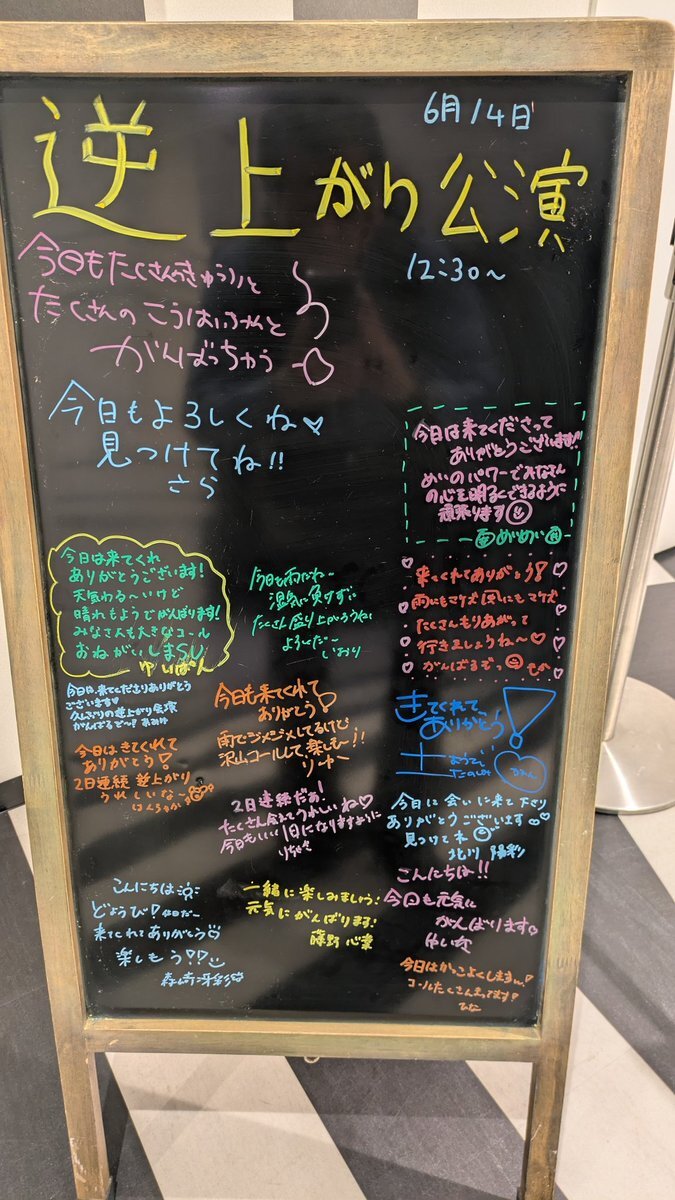 6月14日
逆上がり公演
12:30～
今日もたくさんのきゅうりと
たくさんのこうはいちゃんと
がんばっちゃう
今日もよろしくね♡
見つけてね!!
さら
今日は来てくださって
ありがとうございます!!
めいのパワーでみなさん
の心を明るくできるように
頑張ります
めいめい
今日は来てくれ
ありがとうございます!
天気わる〜いけど
晴れもようでがんばります!
みなさんも大きなコール
おねがいしまSU
ゆいぱん
今日も雨だね〜
湿気に負けずに
たくさん盛り上がろうね
よろしくだ〜
しおり
来てくれてありがとう!
雨にもマケズ風にもマケズ
たくさんもりあがって
行きましょうね〜♡
がんばるぞっ
今日は、来てくださりありがとう
ございます♡
久しぶりの逆上がり公演
がんばるぞ〜!
今日も来てくれて
ありがとう!
雨でジメジメしてるけど
沢山コールして楽しも〜!!
りーゆー
きてくれて、
ありがとう!
土
今日はきてくれて
ありがとう!
2日連続逆上がり
うれしいな〜
はんちゃか
2日連続だぁ!
たくさん会えてうれしいね♡
今日もいい1日になりますように
今日は会いに来て下さり
ありがとうございます
見つけてネ
北川 陽彩
こんにちは
どようび!休日だー
来てくれてありがとう♡
楽しもう!?
森﨑冴彩
一緒に楽しみましょう!
元気にがんばります!
藤野 心葉
こんにちは!!
今日も元気に
がんばります
ゆいな
今日はかっこよくします
コールたくさんまってます!
ひな